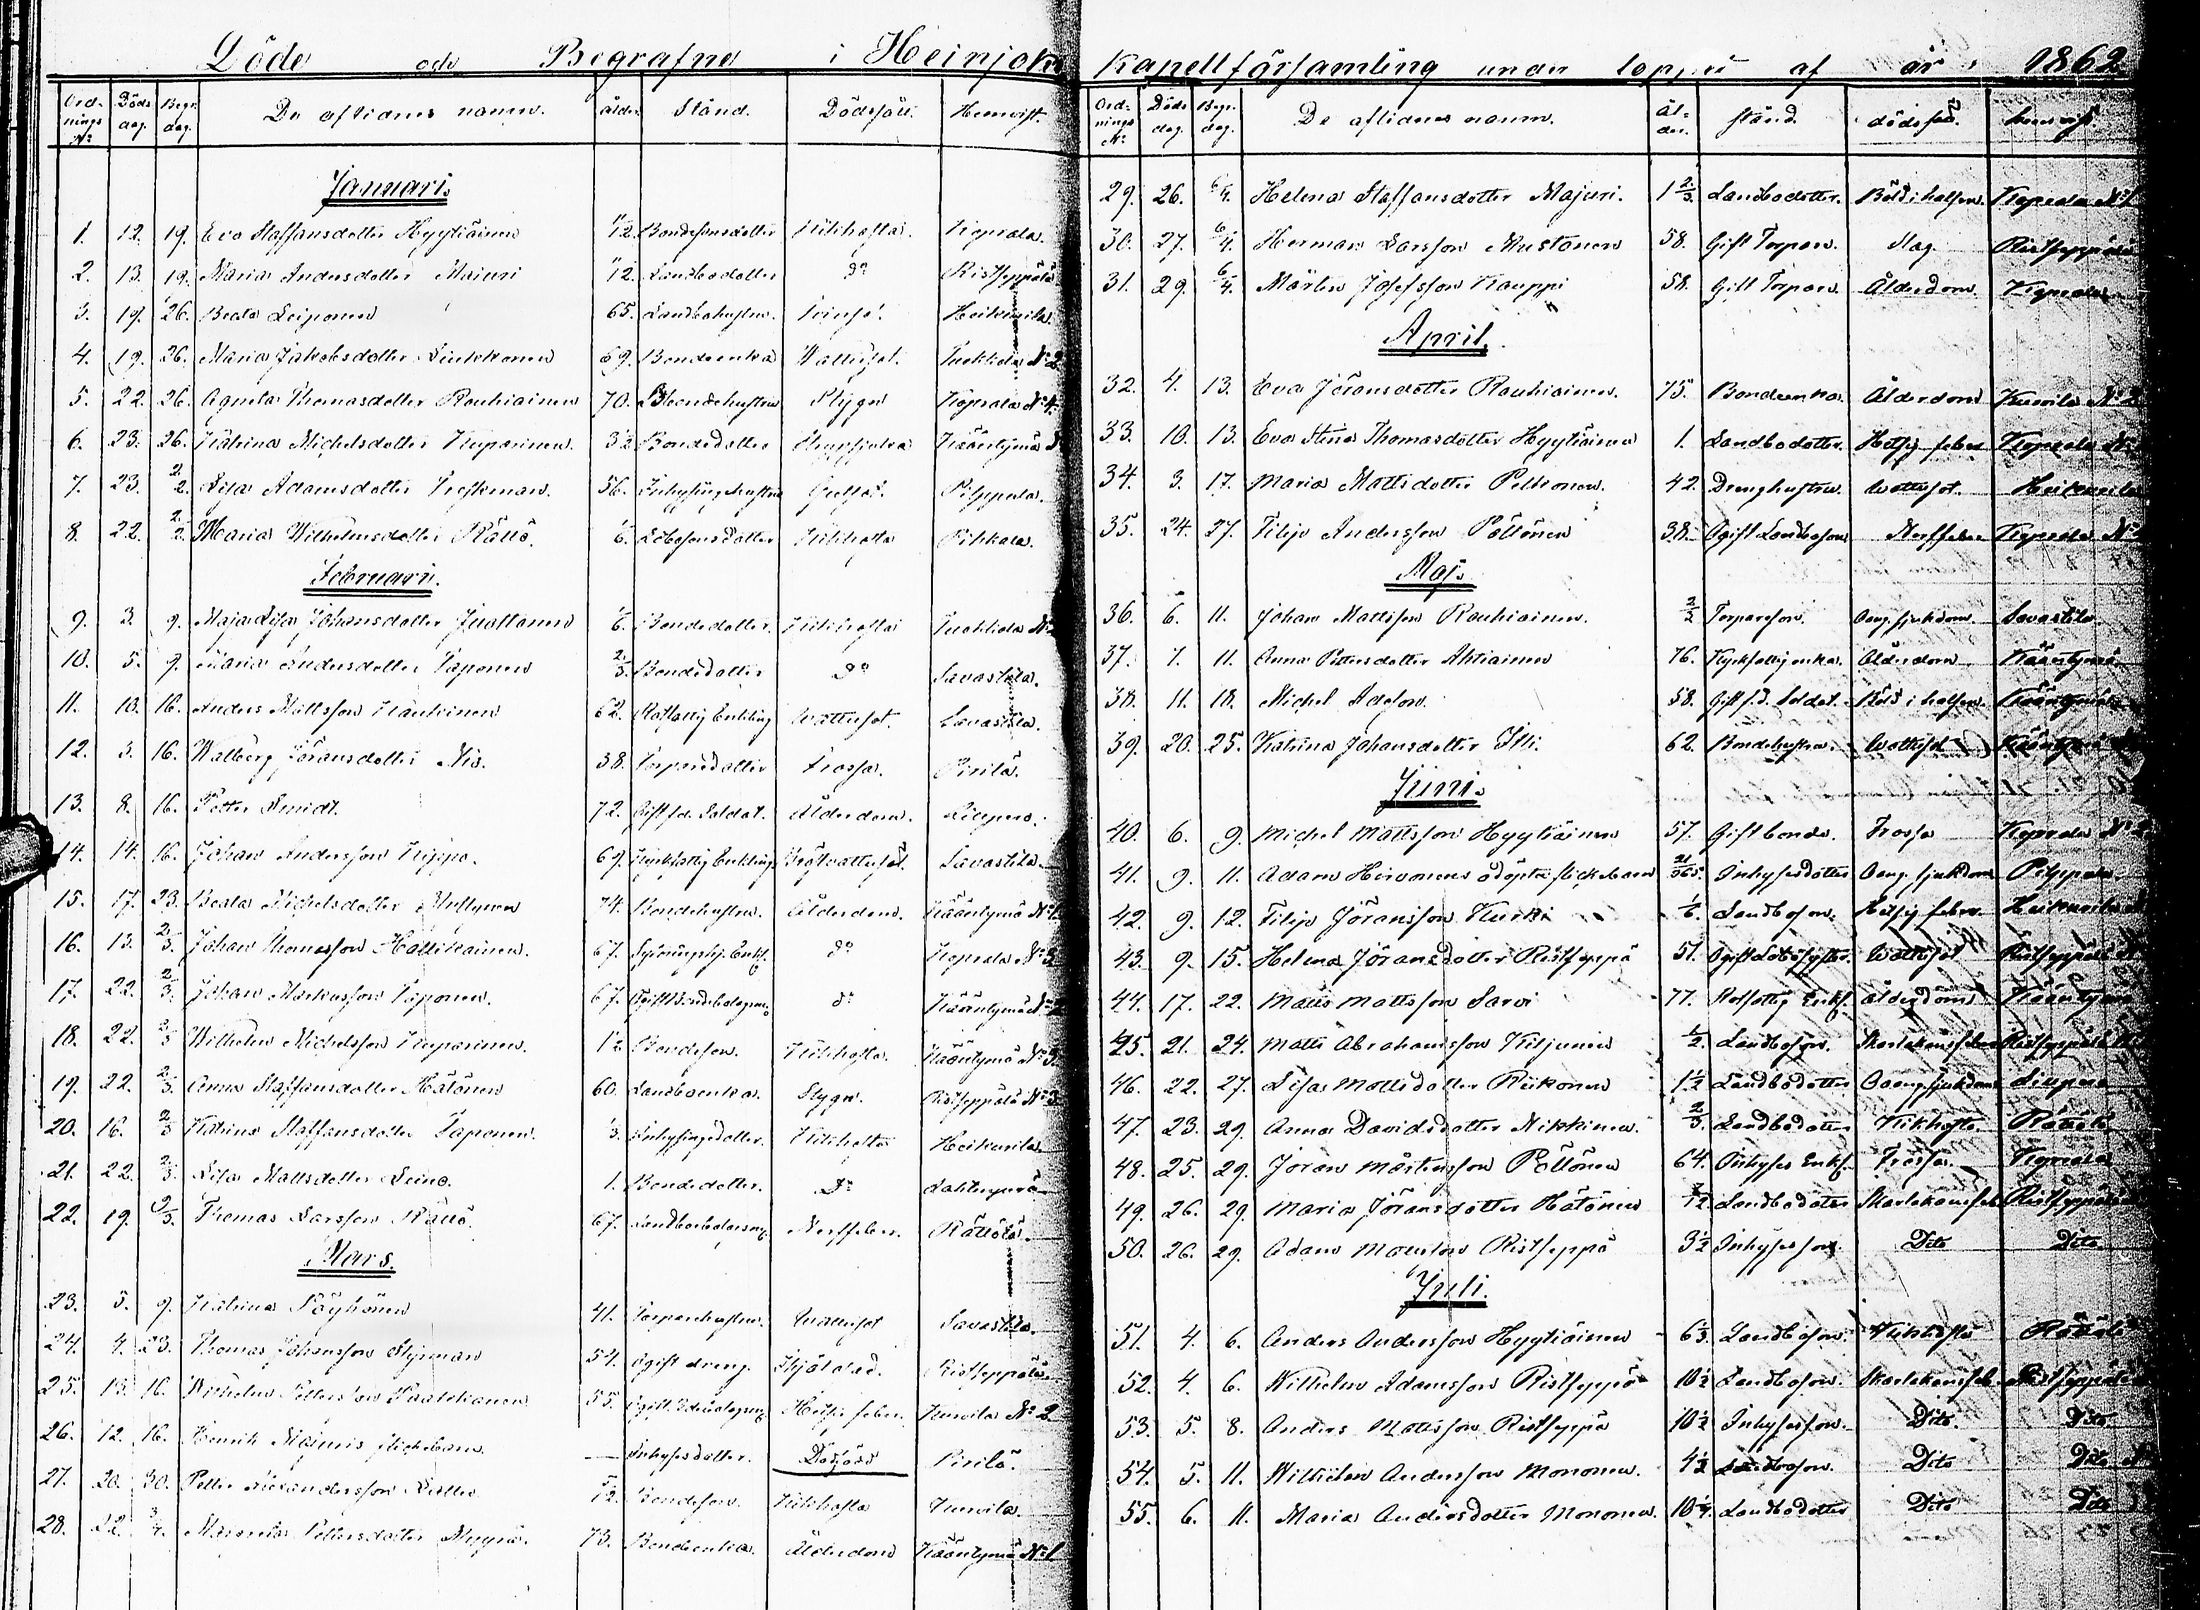 Döde och Begrafne i Heinjoki
Ordnings No Döds dag. Begr. dag. De aflidnes namn. ålder Stånd. Dödssätt. Hemvist.
Januari.
1. 12. 19. Eva Staffansdotter Hyytiäinen Bondesonsdotter Kikhosta. Koprala.
2. 13. 19. Maria Andersdotter Majuri Landbodotter do Ristseppälä
3. 19. 26. Beata Leiponen 65. Landbohustru. Heikurila.
4. 19. 26. Maria Jakobsdotter Sinkkonen 69. Bondeenka Wattusot. Tuokkola No 2
5. 22. 26. Agneta Thomasdotter Rauhiainen 70. Bondehustru Stygn Koprala No 4.
6. 23. 26. Katrina Michelsdotter Kuparinen. 3 1/2 Bondedotter Kääntymä
7. 23. 2/2. Lisa Adamsdotter 56. Inhysingehustru Gulsot. Pilppula.
8. 22. 2/2. Maria Wilhelmsdotter Rättö. 1/6. Kikhosta Pihkala.
Februari.
9. 3. 9. Maja Lisa Johansdotter Juottonen 1/6. Bondedotter. Kikhosta Tuokkola No
10. 5. 9. Maria Andersdotter Taponen 2/3. Bondedotter do Savastila.
11. 10. 16. Anders Mattsson 62. Rotfattig Enkling Wattusot. Savastila.
12. 3. 16. Walborg Jöransdotter 38. Torparedotter Trossa. Pirilä.
13. 8. 16. Petter Smidt. 72. Gift f.d. Soldat. Ålderdom. Liepuro.
14. 14. 16. Johan Andersson 69. Kyrkfattig Enkling Bröstvattusot. Savastila.
15. 17. 23. Beata Michelsdotter 74. Bondehustru. Ålderdom. Kääntymä No 1.
16. 13. 2/3. Johan Thomasson Hallikainen. 67. do Koprala No 3
17. 22. 2/3. Johan Markusson Taponen. 67. do Kääntymä No
18. 22. 2/3 Wilhelm Michelsson Kuparinen. 1/2 Bondeson. Kikhosta Kääntymä No 3.
19. 22. 2/3. Anna Staffansdotter Hätönen 60. Landboenka. Stygn. Ristseppälä No 3
20. 16. 2/3 Katrina Staffansdotter Taponen. 1/3. Inhysingedotter. Kikhosta Heikurila.
21. 22. 2/3. Lisa Mattsdotter Leino. 1. Bondedotter. do
22. 19. 2/3. Thomas Larsson Rättö. 67. Nerffeber. Rättölä.
Mars.
23. 5. 9. Katrina Pöyhönen 41. Torparehustru. Wattusot Savastila.
24. 4. 23. Thomas Johansson Styrman 54. Ogift dreng. Ihjälslagd. Ristseppälä
25. 13. 16. Wilhelm Pettersson Paakkonen 55. Hetsig feber. Kurvila No 2.
26. 12. 16. Henrik flickebarn — Inhysesdotter. Dödfödd Pirilä.
27. 20. 30. Petter Alexandersson 5/12. Bondeson. Kikhosta Kurvila.
28. 22. Pettersdotter 73. Bondeenka. Ålderdom Kääntymä No 1
Kapellförsamling under loppet af år 1862.
Ordnings No Döds dag. Begr. dag. De aflidnes namn. Ålder. stånd. dödssätt. hemvist.
29. 26. 6/4. Helena Staffansdotter Majuri. 1 2/3. Landbodotter. Böld i halsen. Koprala No 1
30. 27. 6/4. Herman Larsson Mustonen 58. Gift Torpare. Slag. Ristseppälä
31. 29. 6/4. Mårten Josefsson Kauppi 58. Gift Torpare. Ålderdom. Koprala
April.
32. 4. 13. Eva Jöransdotter Rauhiainen. 75. Bondeenka. Ålderdom Kurvila No 2
33. 10. 13. Eva Stina Thomasdotter Hyytiäinen 1. Landbodotter. Hetsig feber Koprala No
34. 3. 17. Maria Mattsdotter Pelkonen. 42. Drenghustru. Wattusot. Heikurila
35. 24. 27. Filip Andersson Pöllönen 38. Ogift Landboson Nerffeber Koprala No
Maj.
36. 6. 11. Johan Mattsson Rauhiainen. 2/3 Torpareson. Oang. sjukdom Savastila
37. 7. 11. Anna Pettersdotter Ahtiainen 76. Kyrkfattig enka. Ålderdom Kääntymä
38. 11. 18. Michel 58. Gift f.d. Soldat. Böld i halsen. Kääntymä
39. 20. 25. Katrina Johansdotter Illi. 62. Bondehustru. Wattusot Kääntymä
Juni.
40. 6. 9. Michel Mattsson Hyytiäinen 57. Gift bonde. Trossa Koprala No
41. 9. 11. Adam Hirvonens odöpta flickebarn 21/365. Inhysesdotter Oang. sjukdom Pilppula.
42. 9. 12. Filip Jöransson Kurki 1/6. Landboson. Hetsig feber. Heikurila
43. 9. 15. Helena Jöransdotter Ristseppä 51. Wattusot Ristseppälä
44. 17. 22. Matts Mattsson Sarvi 77. Rotfattig Enkl. Ålderdom Kääntymä
45. 21. 24. Matts Abrahamsson Kiljunen 1/2. Landboson. Skarlakansfeber Ristseppälä
46. 22. 27. Lisa Mattsdotter Riikonen 1 1/2 Landbodotter Oang. sjukdom Liepuro
47. 23. 29. Anna Davidsdotter Nikkinen. 2/3. Landbodotter Kikhosta. Rättölä
48. 25. 29. Jöran Mårtensson Pöllönen 64. Inhyses Enkl. Trossa. Koprala
49. 26. 29. Maria Jöransdotter Hätönen Landbodotter Skarlakansfeb. Ristseppälä
50. 26. 29. Adam Mattsson Ristseppä 3 1/2 Inhyseson. Dito Dito
Juli.
51. 4. 6. Anders Andersson Hyytiäinen Landboson. Kikhosta Rättölä
52. 4. 6. Wilhelm Adamsson Ristseppä 10 1/2 Landboson. Skarlakansfeb. Ristseppälä
53. 5. 8. Anders Mattsson Ristseppä 10 1/2 Inhyseson. Dito Dito
54. 5. 11. Wilhelm Andersson Mononen. 4 1/2 Landboson. Dito Dito
55. 6. 11. Maria Andersdotter Mononen. Landbodotter Dito Dito